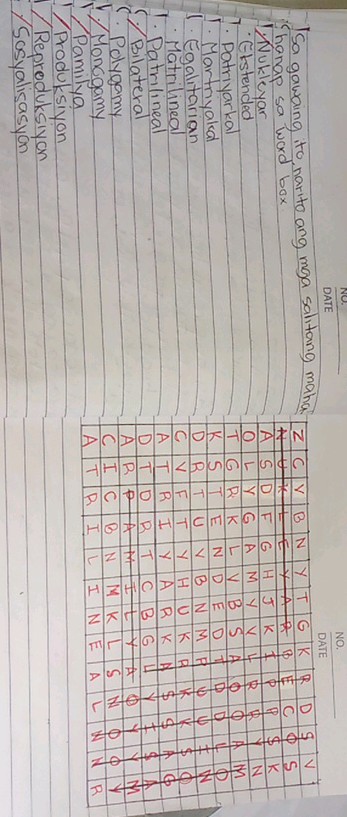 NO.
DATE
Sa gawaing ito, narito ang mga salitang maha
hanap sa word box
Nukleyar
Ekstended
Patriyarkal
Matriyakal
Egalitarian
Matrilineal
Patrilineal
Bilateral
Polygamy
Monogamy
Pamilya
Produksiyon
Reproduksiyon
Sosyalisasyon
NO.
DATE
Z C Y B N Y T G K R D S V
N U K L E Y A R B E C O S
A S D F G H J K I P P S K
O L Y G A M Y V L R R Y N
T G R K L V B S A O O A M
K S T E N D E D T D D L O
D R T U Y B N M P U U I N
C V E T Y H U K R K K S O
A T R I Y A R K A S S A G
D T D R T C B G L
A R P A M I L Y A
C I C B N M K L S N O O Y
A T R I L I N E A L N N R